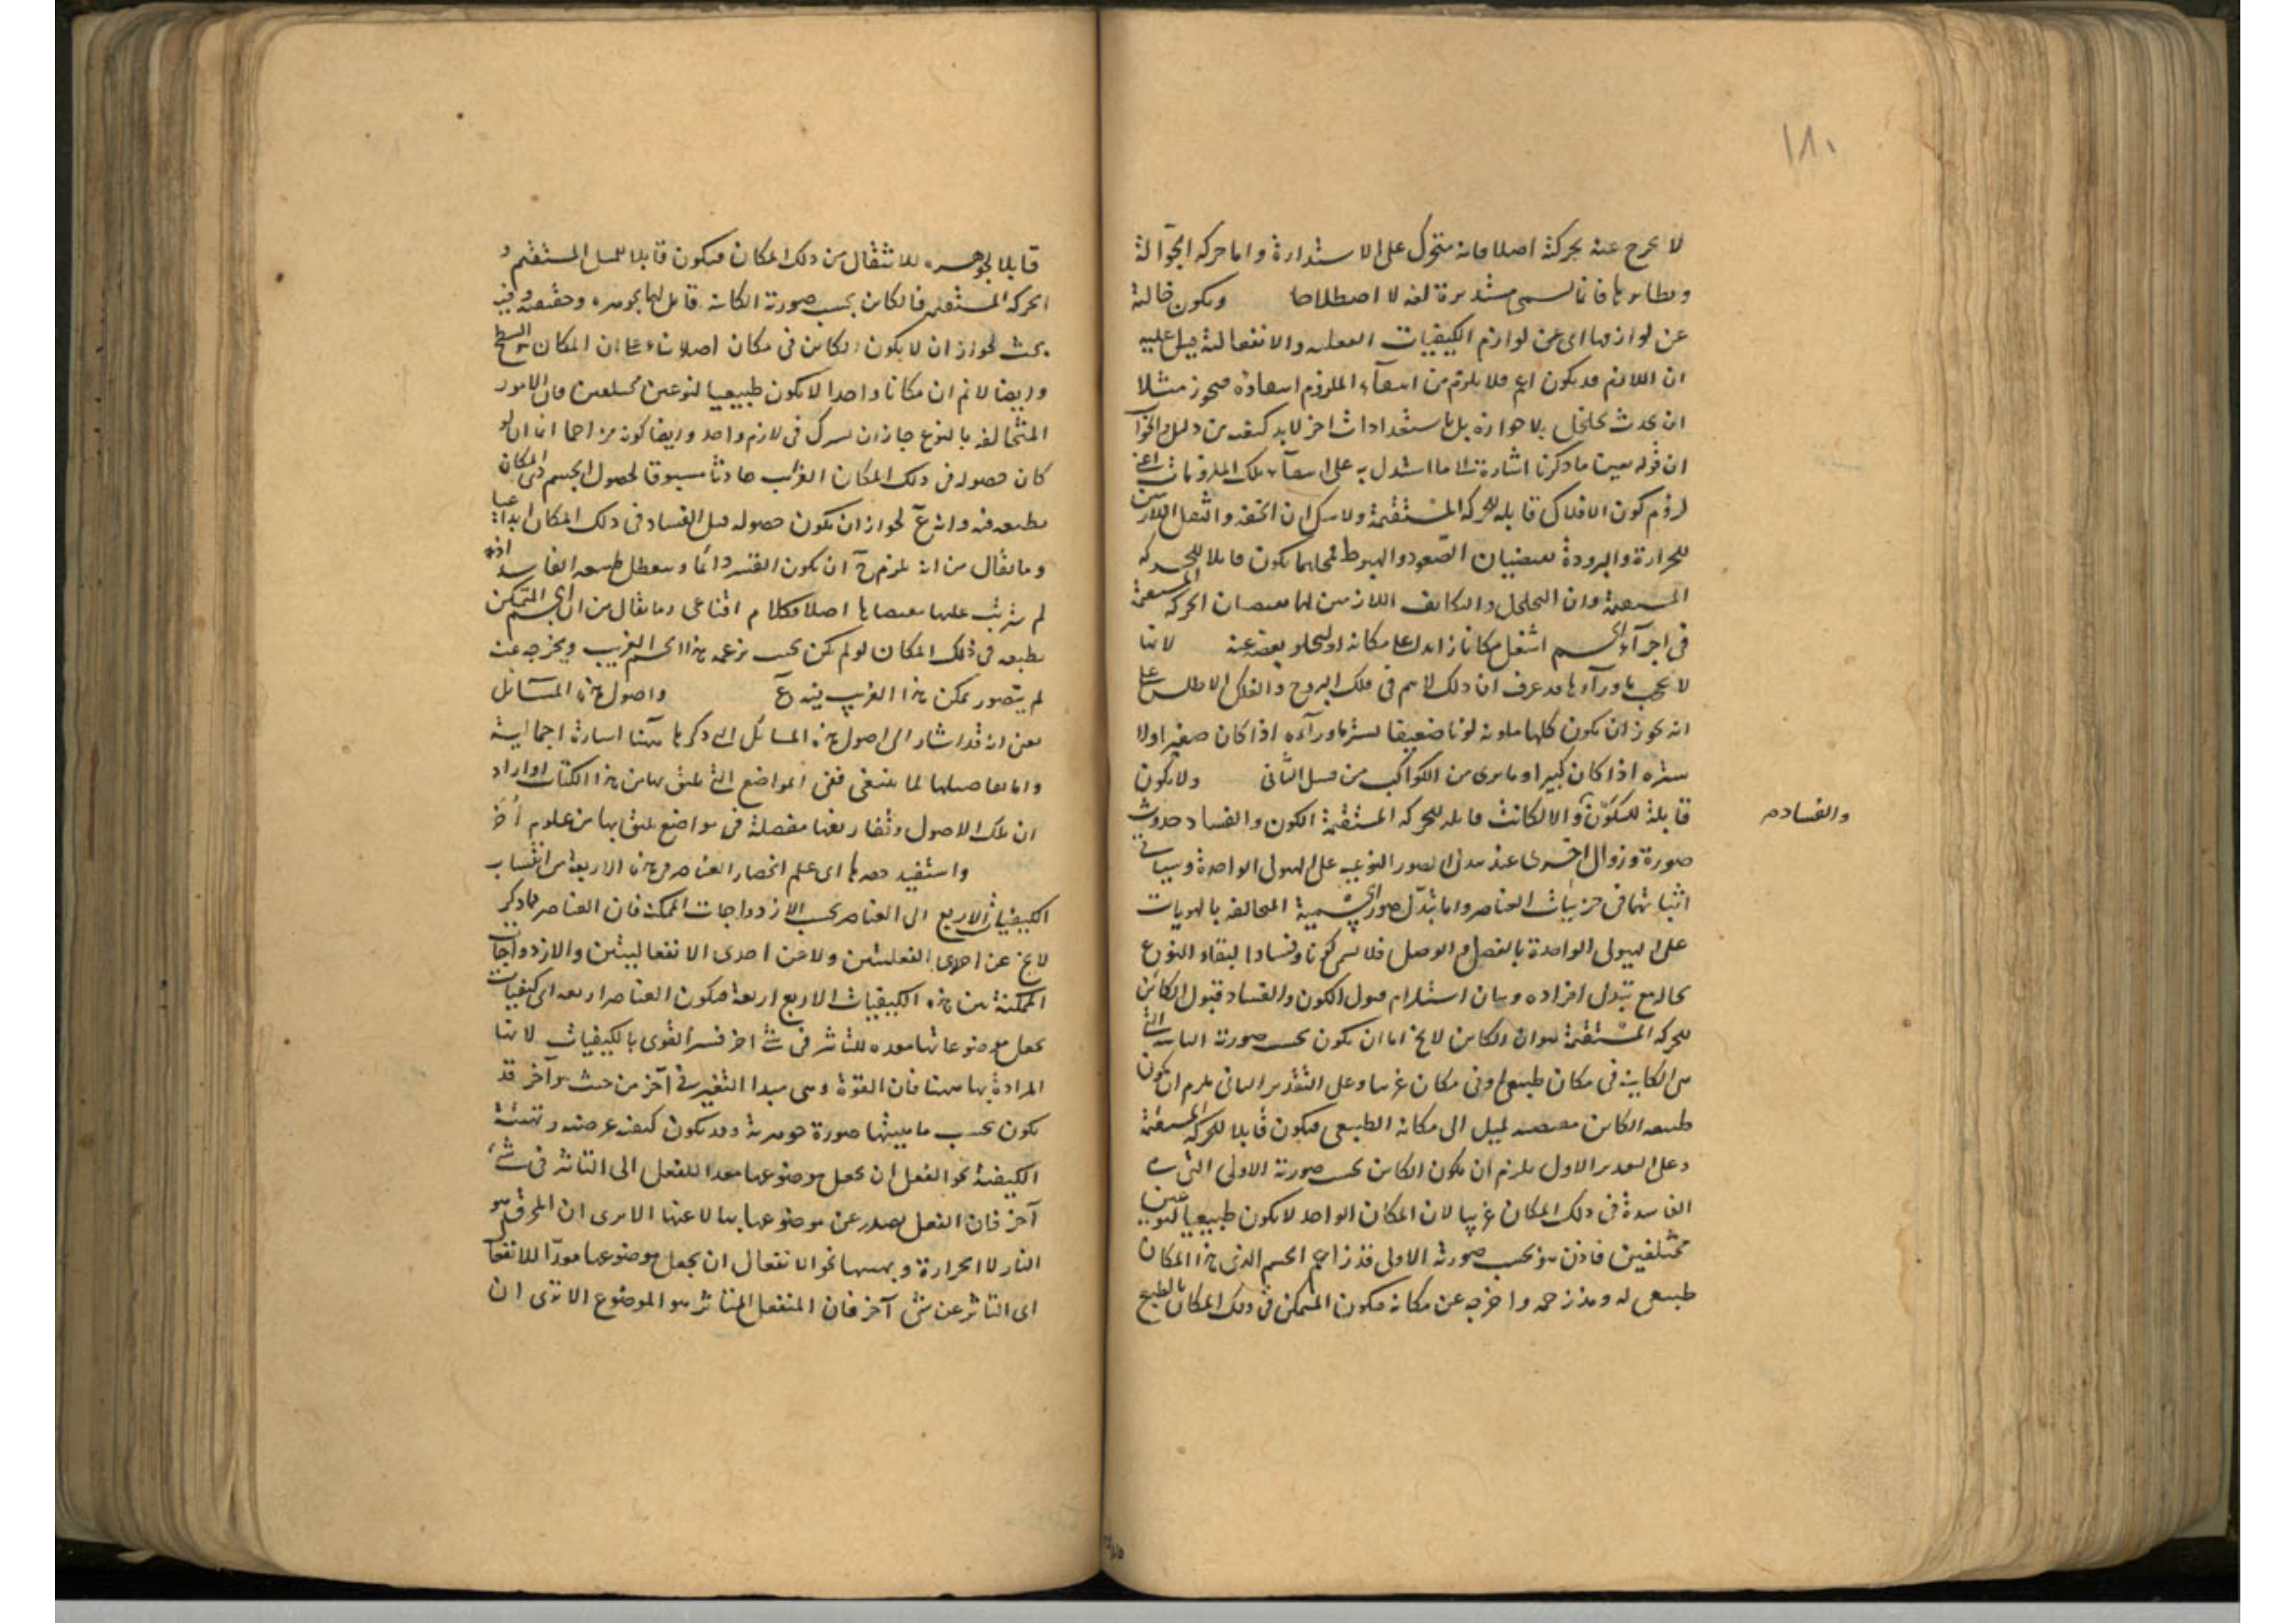 ١٨٠
لا يخرج عنه بحركته اصلا فانه متحرك على الاستدارة واما حركة الجوالة
ونظايرها فانما تسمى مستديرة لغة لا اصطلاحا ويكون خالية
عن لوازمها اى عن لوازم الكيفيات الفعلية والانفعالية قيل عليه
ان اللازم قد يكون اعم فلا يلزم من انتفاء الملزوم انتفاؤه فيجوز مثلا
ان يحدث تخلخل بلا حرارة بل باستعدادات اخر لا بد لنفيه من دليل والجواب
ان قوله بعين ما ذكرنا اشارة الى ما استدل به على انتفاء تلك الملزومات اعنى
لزوم كون الافلاك قابلة للحركة المستقيمة ولا شك ان الخفة والثقل اللازمين
للحرارة والبرودة يقتضيان الصعود والهبوط فمحلهما يكون قابلا للحركة
المستقيمة وان التخلخل والتكاثف اللازمين لهما يقتضيان الحركة المستقيمة
فى اجزاء الجسم اشغل مكانا زايدا على مكانه او ليخلو بعض عنه لانها
لا تحجب ما ورآءها قد عرف ان ذلك لا يتم فى فلك البروج والفلك الاطلس على
انه يجوز ان يكون كلها ملونة لونا ضعيفا يستر ما ورآءه اذا كان صغيرا ولا
يستره اذا كان كبيرا وما يرى من الكواكب من قبيل الثانى ولا يكون
قابلة للكون والا لكانت قابلة للحركة المستقيمة الكون والفساد حدوث
والفساد م
صورة وزوال اخرى عند تبدل الصور النوعية على الهيولى الواحدة وسيأتى
اثباتهما فى جزئيات العناصر واما تبدل صور الجسمية المتخالفة بالهويات
على الهيولى الواحدة بالفصل والوصل فلا يسمى كونا وفسادا لبقاء النوع
بحاله مع تبدل افراده وبيان استلزام قبول الكون والفساد قبول الكائن
للحركة المستقيمة هو ان الكائن لا يخ اما ان يكون بحسب صورته الثانية التى
هى الكاينة فى مكان طبيعى او فى مكان غريب وعلى التقدير الثانى يلزم ان يكون
طبيعة الكائن مقتضية لميل الى مكانه الطبيعى فيكون قابلا للحركة المستقيمة
وعلى التقدير الاول يلزم ان يكون الكائن بحسب صورته الاولى التى هى
الفاسدة فى ذلك المكان غريبا لان المكان الواحد لا يكون طبيعيا لنوعين
مختلفين فاذن هو بحسب صورته الاولى قد زاحم الجسم الذى هذا المكان
طبيعى له وقد زحمه واخرجه عن مكانه فيكون المتمكن فى ذلك المكان بالطبع
قابلا لجوهره للانتقال من ذلك المكان فيكون قابلا للميل المستقيم و
الحركة المستقيمة فالكائن بحسب صورته الكائنة قابل لها بجوهره وحقيقته وفيه
بحث لجواز ان لا يكون الكائن فى مكان اصلا بناء على ان المكان هو السطح
وايضا لا نم ان مكانا واحدا لا يكون طبيعيا لنوعين مختلفين فان الامور
المتخالفة بالنوع جاز ان تشترك فى لازم واحد وايضا كونه مزاحما انما ان لو
كان حصوله فى ذلك المكان الغريب حادثا مسبوقا لحصول الجسم ذى المكان
بطبعه فيه وانه ع لجواز ان يكون حصوله قبل الفساد فى ذلك المكان ابداعيا
وما يقال من انه يلزم ح ان يكون القسر دائما ويتعطل طبيعة الفاسد اذ
لم يترتب عليها مقتضاها اصلا فكلام اقناعى وما يقال من ان الجسم المتمكن
بطبعه فى ذلك المكان لو لم يكن بحيث يزعمه هذا الجسم الغريب ويخرجه عنه
لم يتصور تمكن هذا الغريب فيه ع واصول هذه المسائل
يعنى انه قد اشار الى اصول هذه المسائل التى ذكرها ههنا اشارة اجمالية
واما تفاصيلها لما ينبغى ففى المواضع التى تليق بها من هذا الكتاب او اراد
ان تلك الاصول وتفاريعها مفصلة فى مواضع تليق بها من علوم أخر
واستفيد حصرها اى علم انحصار العناصر فى هذه الاربعة من انتساب
الكيفيات الاربع الى العناصر بحسب الازدواجات الممكنة فان العناصر كما ذكر
لا يخ عن احدى الفعليتين ولا عن احدى الانفعاليتين والازدواجات
الممكنة من هذه الكيفيات الاربع اربعة فيكون العناصر اربعة اى كيفيات
تجعل موضوعاتها معدة للتأثير فى شئ اخر فسر القوى بالكيفيات لانها
المرادة بها ههنا فان القوة وهى مبدأ التغير فى آخر من حيث هو آخر قد
يكون بحسب ماهيتها صورة جوهرية وقد يكون كيفية عرضية وتهيئة
الكيفية نحو الفعل ان تجعل موضوعها معدا للفعل اى التأثير فى شئ
آخر فان الفعل يصدر عن موضوعها بها لا عنها الا يرى ان المحرق هو
النار لا الحرارة وتهيئها نحو الانفعال ان يجعل موضوعها معدّا للانفعال
اى التأثر عن شئ آخر فان المنفعل المتأثر هو الموضوع الا ترى ان